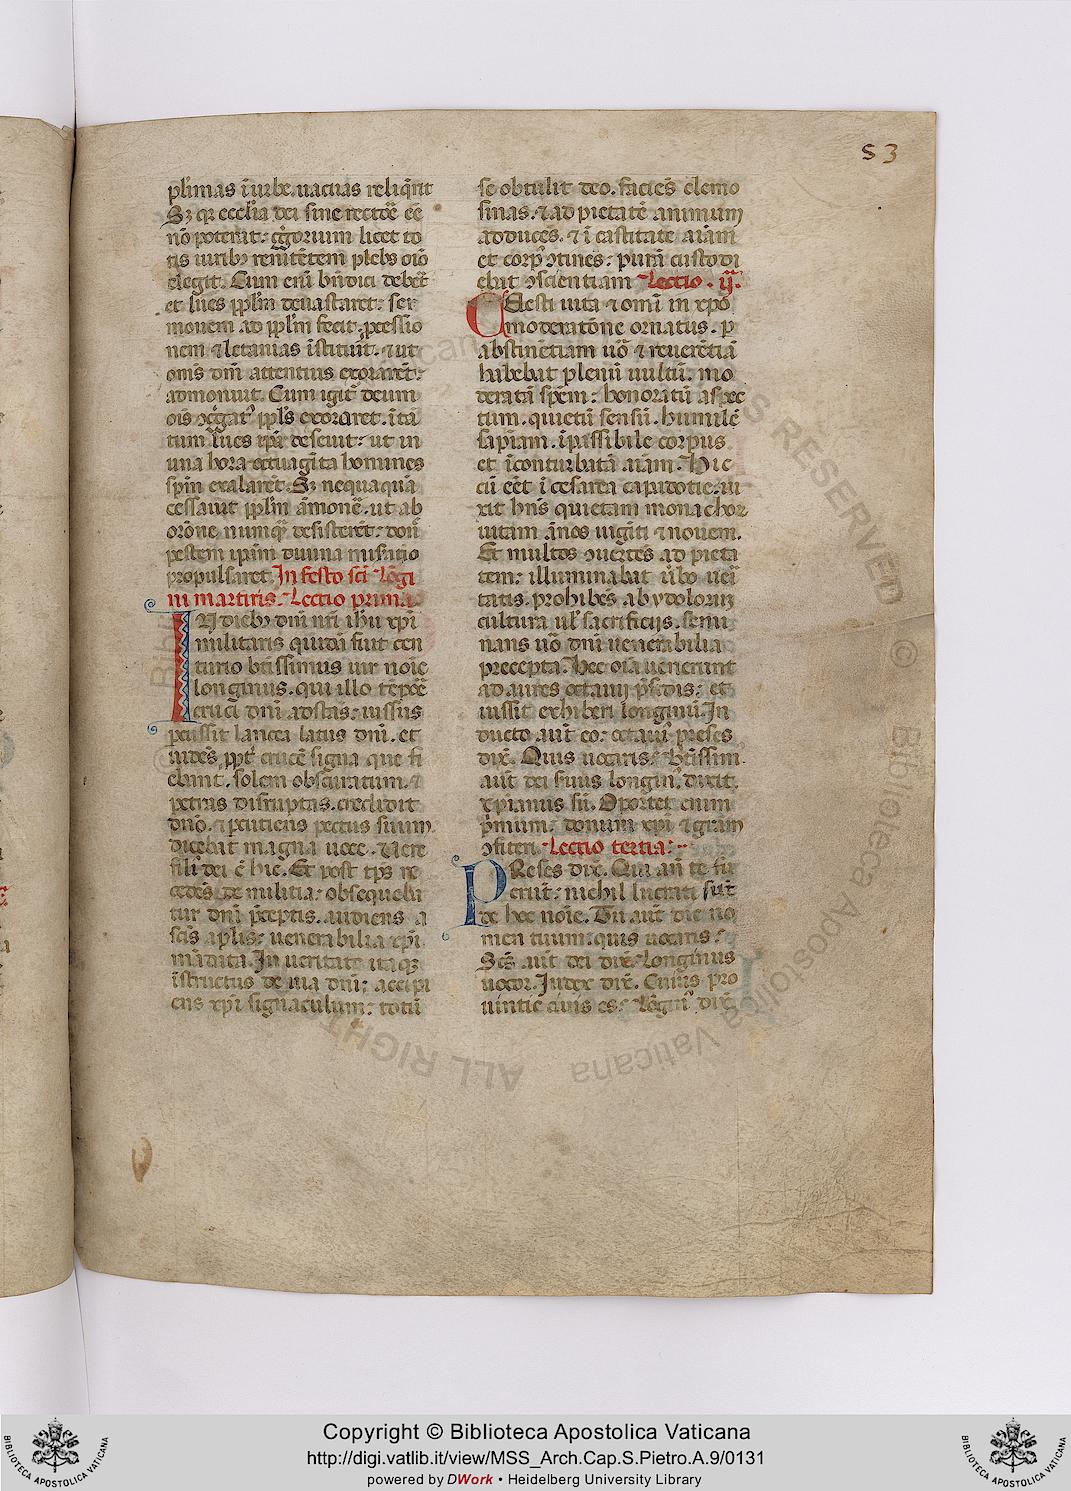 53
pl'imas ī urbe uacuas reliq̄rūt
Sʒ qr ecc'lia dei sine rectoē eē
nō poterat: g̓gorium licet to
tis uiribȝ renitētem plebs oīo
elegit. Cum eiū bn̄dici debēt
et lues pp̄lm deuastaret: ser
monem ad pp̄lm fecit. p̄cessio
nem ⁊ letanias īstituit. ⁊ ut
om̄s dn̄m attentius exorarēt:
admonuit. Cum igit̄ deum
oīs ꝯg̓gat' pp̄ls exoraret. ī tā
tum lues ip̄a deseuit: ut in
una hora octuagīta homines
sp̄m exalarēt. Sʒ nequaquā
cessauit pp̄lm āmonē. ut ab
orōne numq̄ȝ desisterēt: don̄
pestem ipam diuina mis̄atio
propulsaret. In festo sc̄i Lōgi
ni martiris. Lectio prima.
IN diebȝ dn̄i nr̄i ih̄u xp̄i
militaris quidā fuit cen
turio bt̄issimus uir noīe
longinus. qui illo tēpoē
cruci dn̄i adstās: iussus
ꝑcussit lancea latus dn̄i. et
uidēs ppt' crucē signa que fi
ebant. solem obscuratum. ⁊
petras disruptas. credidit
dn̄o. ⁊ ꝑcutiens pectus suum
dicebat magna uoce. Uere
fili' dei ē hic. Et post tp̄s re
cedēs de militia: obsequeba
tur dn̄i p̄ceptis. audiens a
sc̄is ap̄lis: uenerabilia xp̄i
mādata. In ueritate itaqȝ
īstructus de uia dn̄i: accipi
ens xp̄i signaculum: totū
se obtulit deo. faciēs elemo
sinas. ⁊ ad pietatē animum
adducēs. ⁊ ī castitate aīam
et corp' ꝯtinēs: purā custodi
ebat ꝯscientiam. Lectio. ij̄.
Celesti uita ⁊ omī in xp̄o
moderatōne ornatus. ꝑ
abstinētiam uō ⁊ reuerētiā
habebat plenū uultū. mo
deratā spēm: honoratū aspec
tum. quietū sensū. humilē
sapīam. īpassibile corpus
et īconturbatā aīam. Hic
cū eēt ī cesarea capadotie. ui
xit hn̄s quietam monachor
uitam ānos uigīti ⁊ nouem.
Et multos ꝯuertēs ad pieta
tem: illuminabat ūbo ueī
tatis. prohibēs ab ydoloruȝ
cultura ul' sacrificijs. semi
nans uō dn̄i uenerabilia
precepta. Hec oīa uenerunt
ad aures octauij p̄sidis: et
iussit exhiberi longinū. In
ducto aūt eo: octaui' preses
dix̄. Quis uocaris: Bt̄issim'
aūt dei s̄uus longin' dixit.
xp̄ianus sū. Oportet enim
p̄mum: donum xp̄i ⁊ gr̄am
ꝯfiteri. Lectio tertia:
Preses dix̄. Qui añ te fu
erūt: nichil lucrati sūt
de hoc noīe. Tu aūt dic no
men tuum. quis uocaris:
Sc̄s aūt dei dix̄. Longinus
uocor. Iudex dix̄. Cuius pro
uintie ciuis es: Lōgin' dix̄.
© Biblioteca Apostolica Vaticana
ALL RIGHTS RESERVED
Copyright © Biblioteca Apostolica Vaticana
http://digi.vatlib.it/view/MSS_Arch.Cap.S.Pietro.A.9/0131
powered by DWork • Heidelberg University Library
BIBLIOTECA APOSTOLICA VATICANA
BIBLIOTECA APOSTOLICA VATICANA